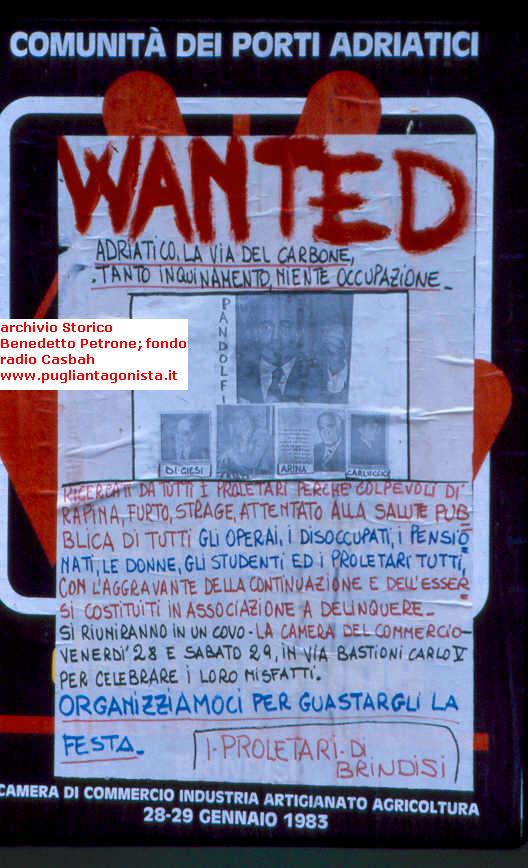 COMUNITÀ DEI PORTI ADRIATICI
WANTED
ADRIATICO. LA VIA DEL CARBONE,
TANTO INQUINAMENTO, NIENTE OCCUPAZIONE_
archivio Storico
Benedetto Petrone; fondo
radio Casbah
www.pugliantagonista.it
PANDOLFI
DI GIESI
ARINA
RICERCATI DA TUTTI I PROLETARI PERCHÈ COLPEVOLI DI
RAPINA, FURTO, STRAGE, ATTENTATO ALLA SALUTE PUB
BLICA DI TUTTI GLI OPERAI, I DISOCCUPATI, I PENSIO
NATI, LE DONNE, GLI STUDENTI ED I PROLETARI TUTTI,
CON L'AGGRAVANTE DELLA CONTINUAZIONE E DELL'ESSER
SI COSTITUITI IN ASSOCIAZIONE A DELINQUERE_
SI RIUNIRANNO IN UN COVO - LA CAMERA DEL COMMERCIO-
VENERDI' 28 E SABATO 29, IN VIA BASTIONI CARLO V
PER CELEBRARE I LORO MISFATTI.
ORGANIZZIAMOCI PER GUASTARGLI LA
FESTA_
I-PROLETARI-DI
BRINDISI
CAMERA DI COMMERCIO INDUSTRIA ARTIGIANATO AGRICOLTURA
28-29 GENNAIO 1983